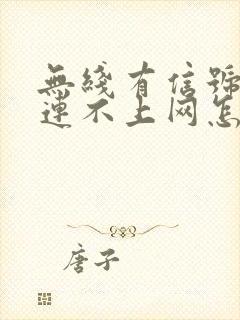 無綫有信號
連不上网怎
唐子